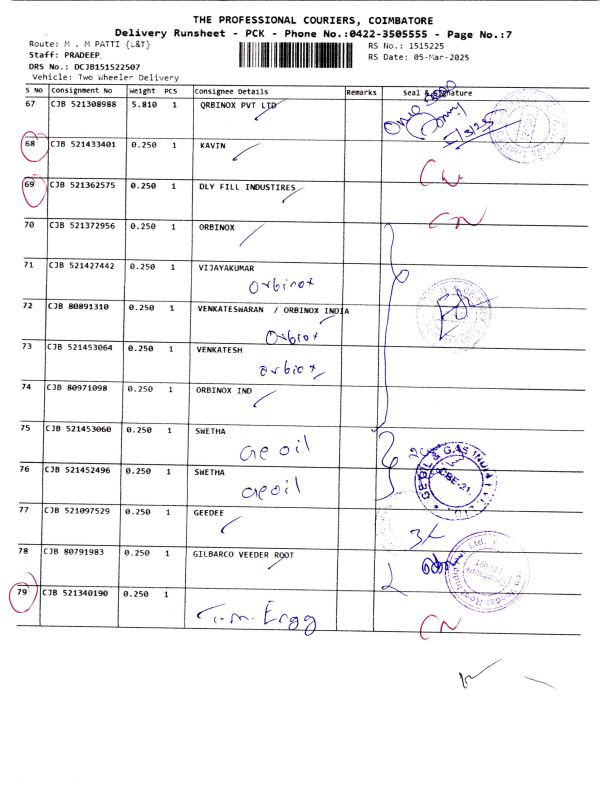 THE PROFESSIONAL COURIERS, COIMBATORE
Delivery Runsheet - PCK - Phone No.:0422-3505555 - Page No.:7
Route: M . M PATTI {L&T}
RS No.: 1515225
Staff: PRADEEP
RS Date: 05-Mar-2025
DRS No.: DCJB151522507
Vehicle: Two Wheeler Delivery
S No Consignment No Weight PCS Consignee Details Remarks Seal & Signature
67 CJB 521308988 5.810 1 QRBINOX PVT LTD
5/3/25
68 CJB 521433401 0.250 1 KAVIN
CN
69 CJB 521362575 0.250 1 DLY FILL INDUSTIRES
CN
70 CJB 521372956 0.250 1 ORBINOX
71 CJB 521427442 0.250 1 VIJAYAKUMAR
orbinox
72 CJB 80891310 0.250 1 VENKATESWARAN / ORBINOX INDIA
orbiox
73 CJB 521453064 0.250 1 VENKATESH
orbiox
74 CJB 80971098 0.250 1 ORBINOX IND
75 CJB 521453060 0.250 1 SWETHA
Ge oil
76 CJB 521452496 0.250 1 SWETHA
Ge oil
GE OIL & GAS INDIA
CBE-21.
77 CJB 521097529 0.250 1 GEEDEE
78 CJB 80791983 0.250 1 GILBARCO VEEDER ROOT
79 CJB 521340190 0.250 1
T.m. Engg
CN